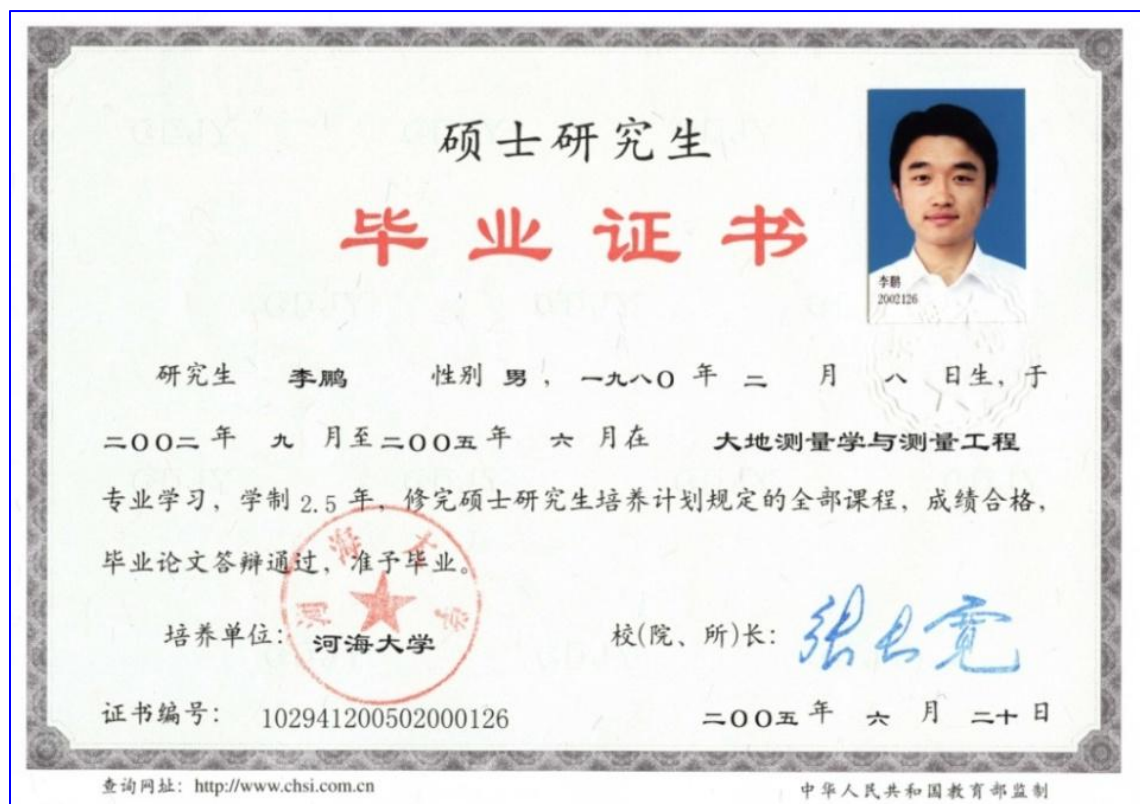 硕士研究生
毕业证书
李鹏
2002126
研究生 李鹏 性别 男 , 一九八〇 年 二 月 八 日生, 于
二〇〇二 年 九 月至 二〇〇五 年 六 月在 大地测量学与测量工程
专业学习, 学制 2.5 年, 修完硕士研究生培养计划规定的全部课程, 成绩合格,
毕业论文答辩通过, 准予毕业。
河海大学
培养单位: 河海大学 校(院、所)长: 张长宽
证书编号: 102941200502000126 二〇〇五 年 六 月 二十 日
查询网址: http://www.chsi.com.cn 中华人民共和国教育部监制